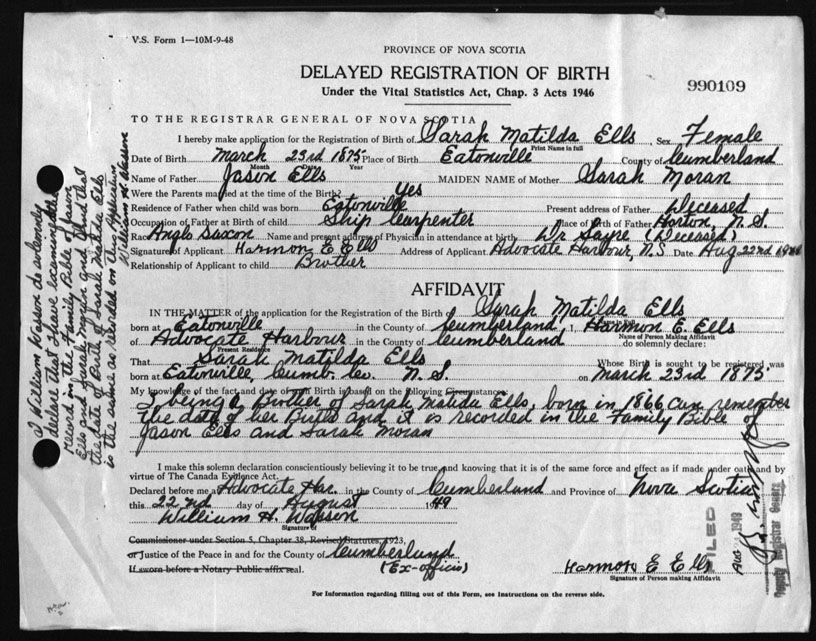 V.S. Form 1—10M-9-48
PROVINCE OF NOVA SCOTIA
DELAYED REGISTRATION OF BIRTH
990109
Under the Vital Statistics Act, Chap. 3 Acts 1946
TO THE REGISTRAR GENERAL OF NOVA SCOTIA
I hereby make application for the Registration of Birth of Sarah Matilda Ells, Sex Female
Print Name in full
Date of Birth March 23rd 1875 Place of Birth Eatonville County of Cumberland
Month Date Year
Name of Father Jason Ells MAIDEN NAME of Mother Sarah Moran
Were the Parents married at the time of the Birth? Yes
Residence of Father when child was born Eatonville Present address of Father Deceased
Occupation of Father at Birth of child Ship Carpenter Place of Birth of Father Horton, N.S.
Race Anglo Saxon Name and present address of Physician in attendance at birth Dr Sayre (Deceased)
Signature of Applicant Harmon E Ells Address of Applicant Advocate Harbour, N.S. Date Aug 22nd 1949
Relationship of Applicant to child Brother
AFFIDAVIT
IN THE MATTER of the application for the Registration of the Birth of Sarah Matilda Ells
born at Eatonville in the County of Cumberland, I, Harmon E. Ells
Name of Person Making Affidavit
of Advocate Harbour in the County of Cumberland do solemnly declare:
Present Residence
That Sarah Matilda Ells Whose Birth is sought to be registered was
born at Eatonville, Cumb. Co. N.S. on March 23rd 1875
My knowledge of the fact and date of this Birth is based on the following Circumstances:
I, being a Brother of Sarah Matilda Ells, born in 1866 can remember
the date of her Birth and it is recorded in the Family Bible of
Jason Ells and Sarah Moran
I make this solemn declaration conscientiously believing it to be true and knowing that it is of the same force and effect as if made under oath and by
virtue of The Canada Evidence Act.
Declared before me at Advocate Har. in the County of Cumberland and Province of Nova Scotia
this 22nd day of August 1949
William H. Wasson
Signature of
Commissioner under Section 5, Chapter 38, Revised Statutes, 1923,
or Justice of the Peace in and for the County of Cumberland
If sworn before a Notary Public affix seal. (Ex-officio)
Harmon E Ells
Signature of Person making Affidavit
For Information regarding filling out of this Form, see Instructions on the reverse side.
I William Wasson do solemnly
declare that I have examined the
record in the Family Bible of Jason
Ells and Sarah Moran and find that
the date of Birth of Sarah Matilda Ells
is the same as recorded on the Application
William H. Wasson
FILED
AUG 1949
Deputy Registrar General